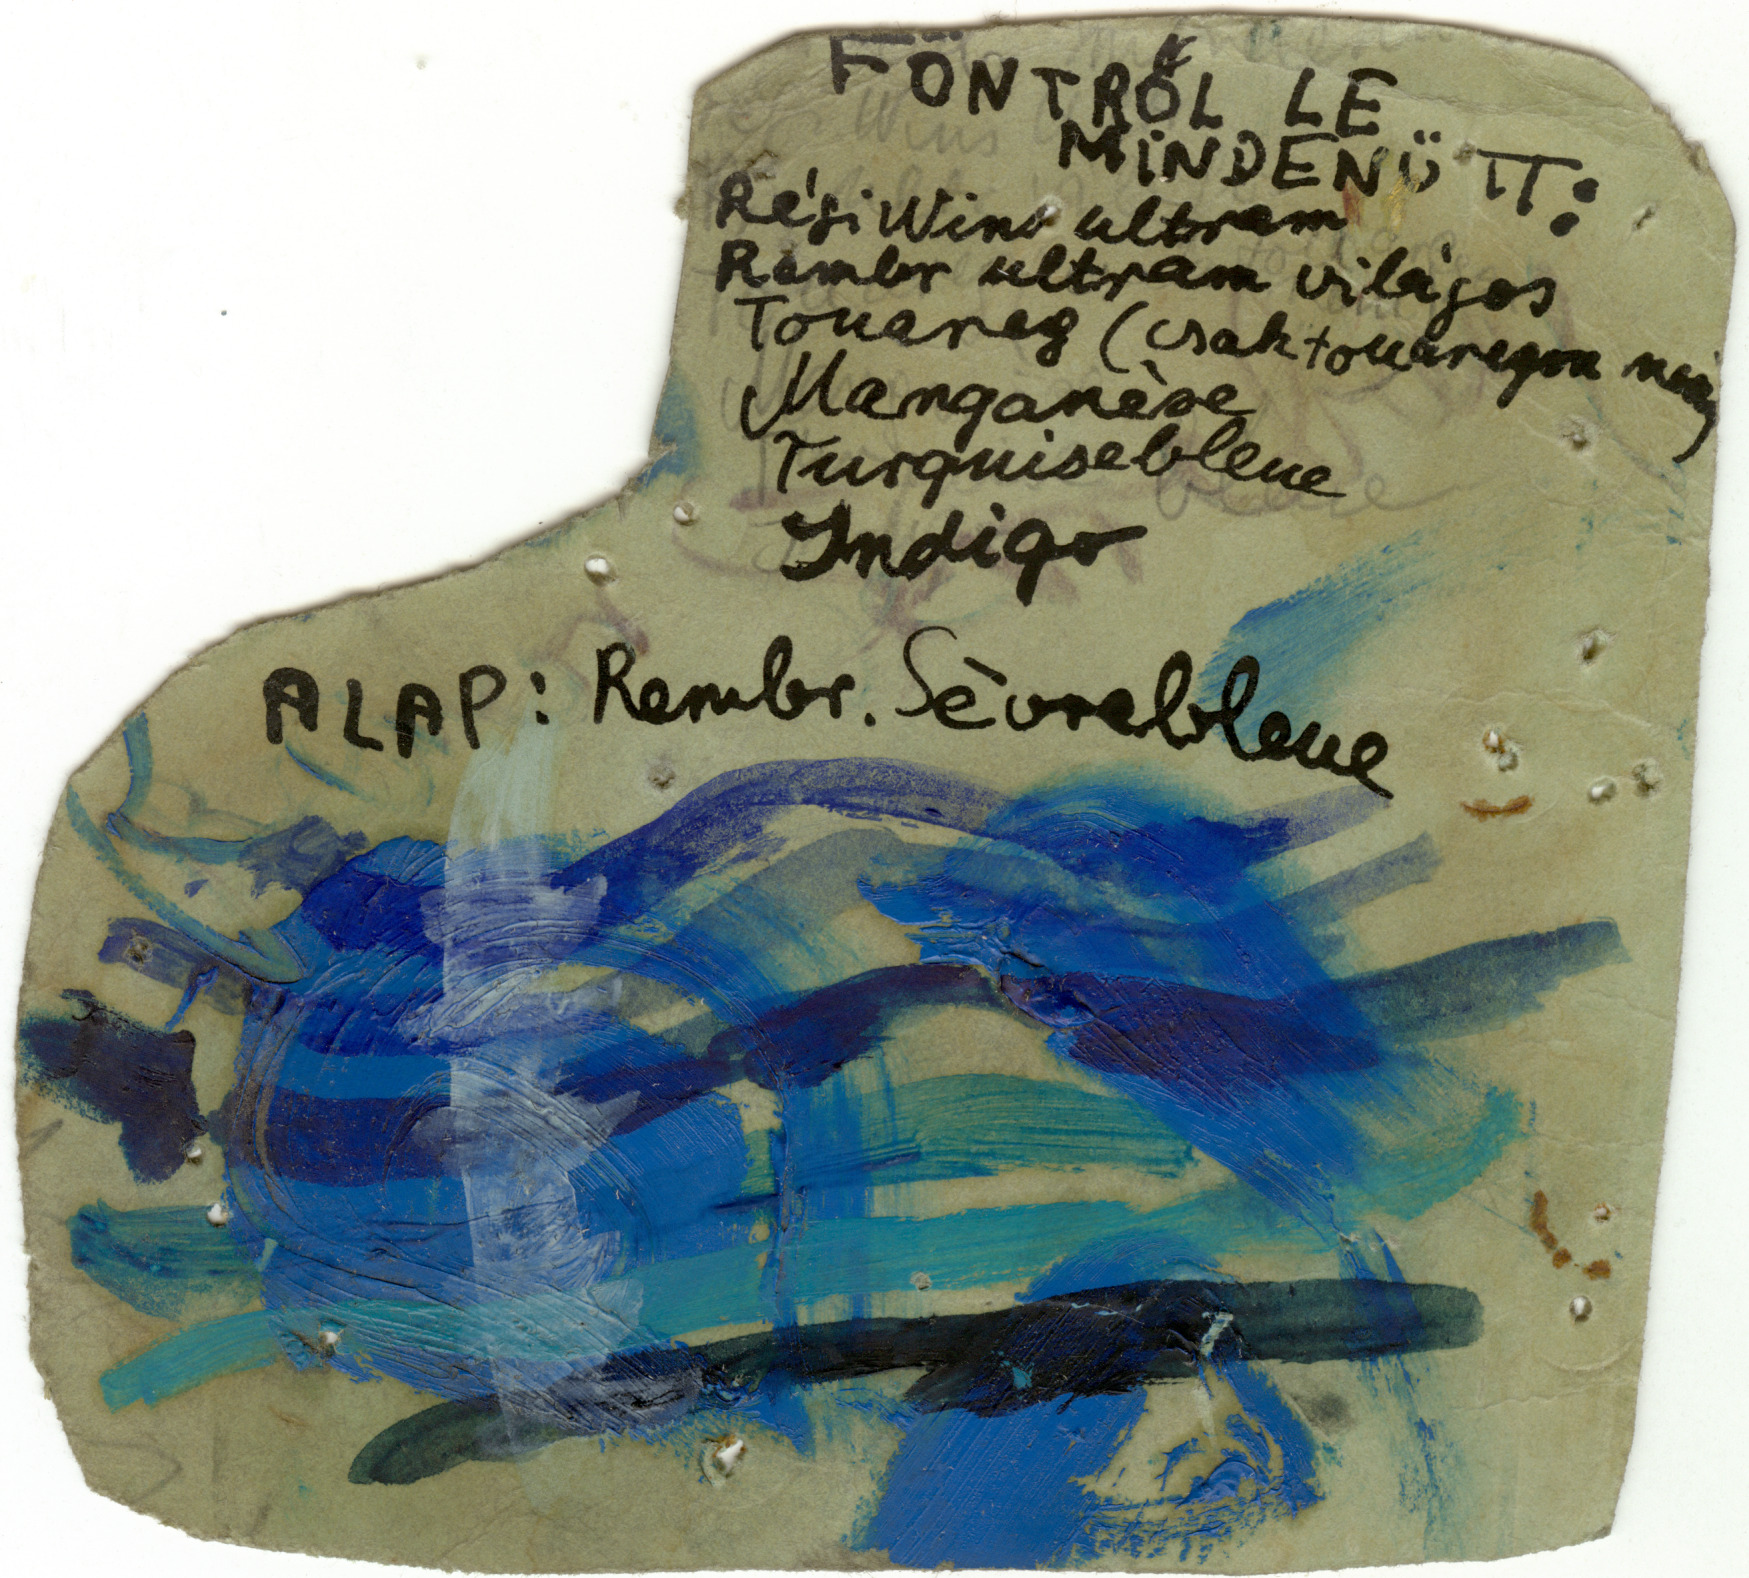 FÖNTRŐL LE
MINDENÜTT:
Régi Wins ultram
Rembr ultram világos
Touareg (csak touaregon
Manganèse
Turquisebleue
Indigo
ALAP: Rembr. Sèvrebleue